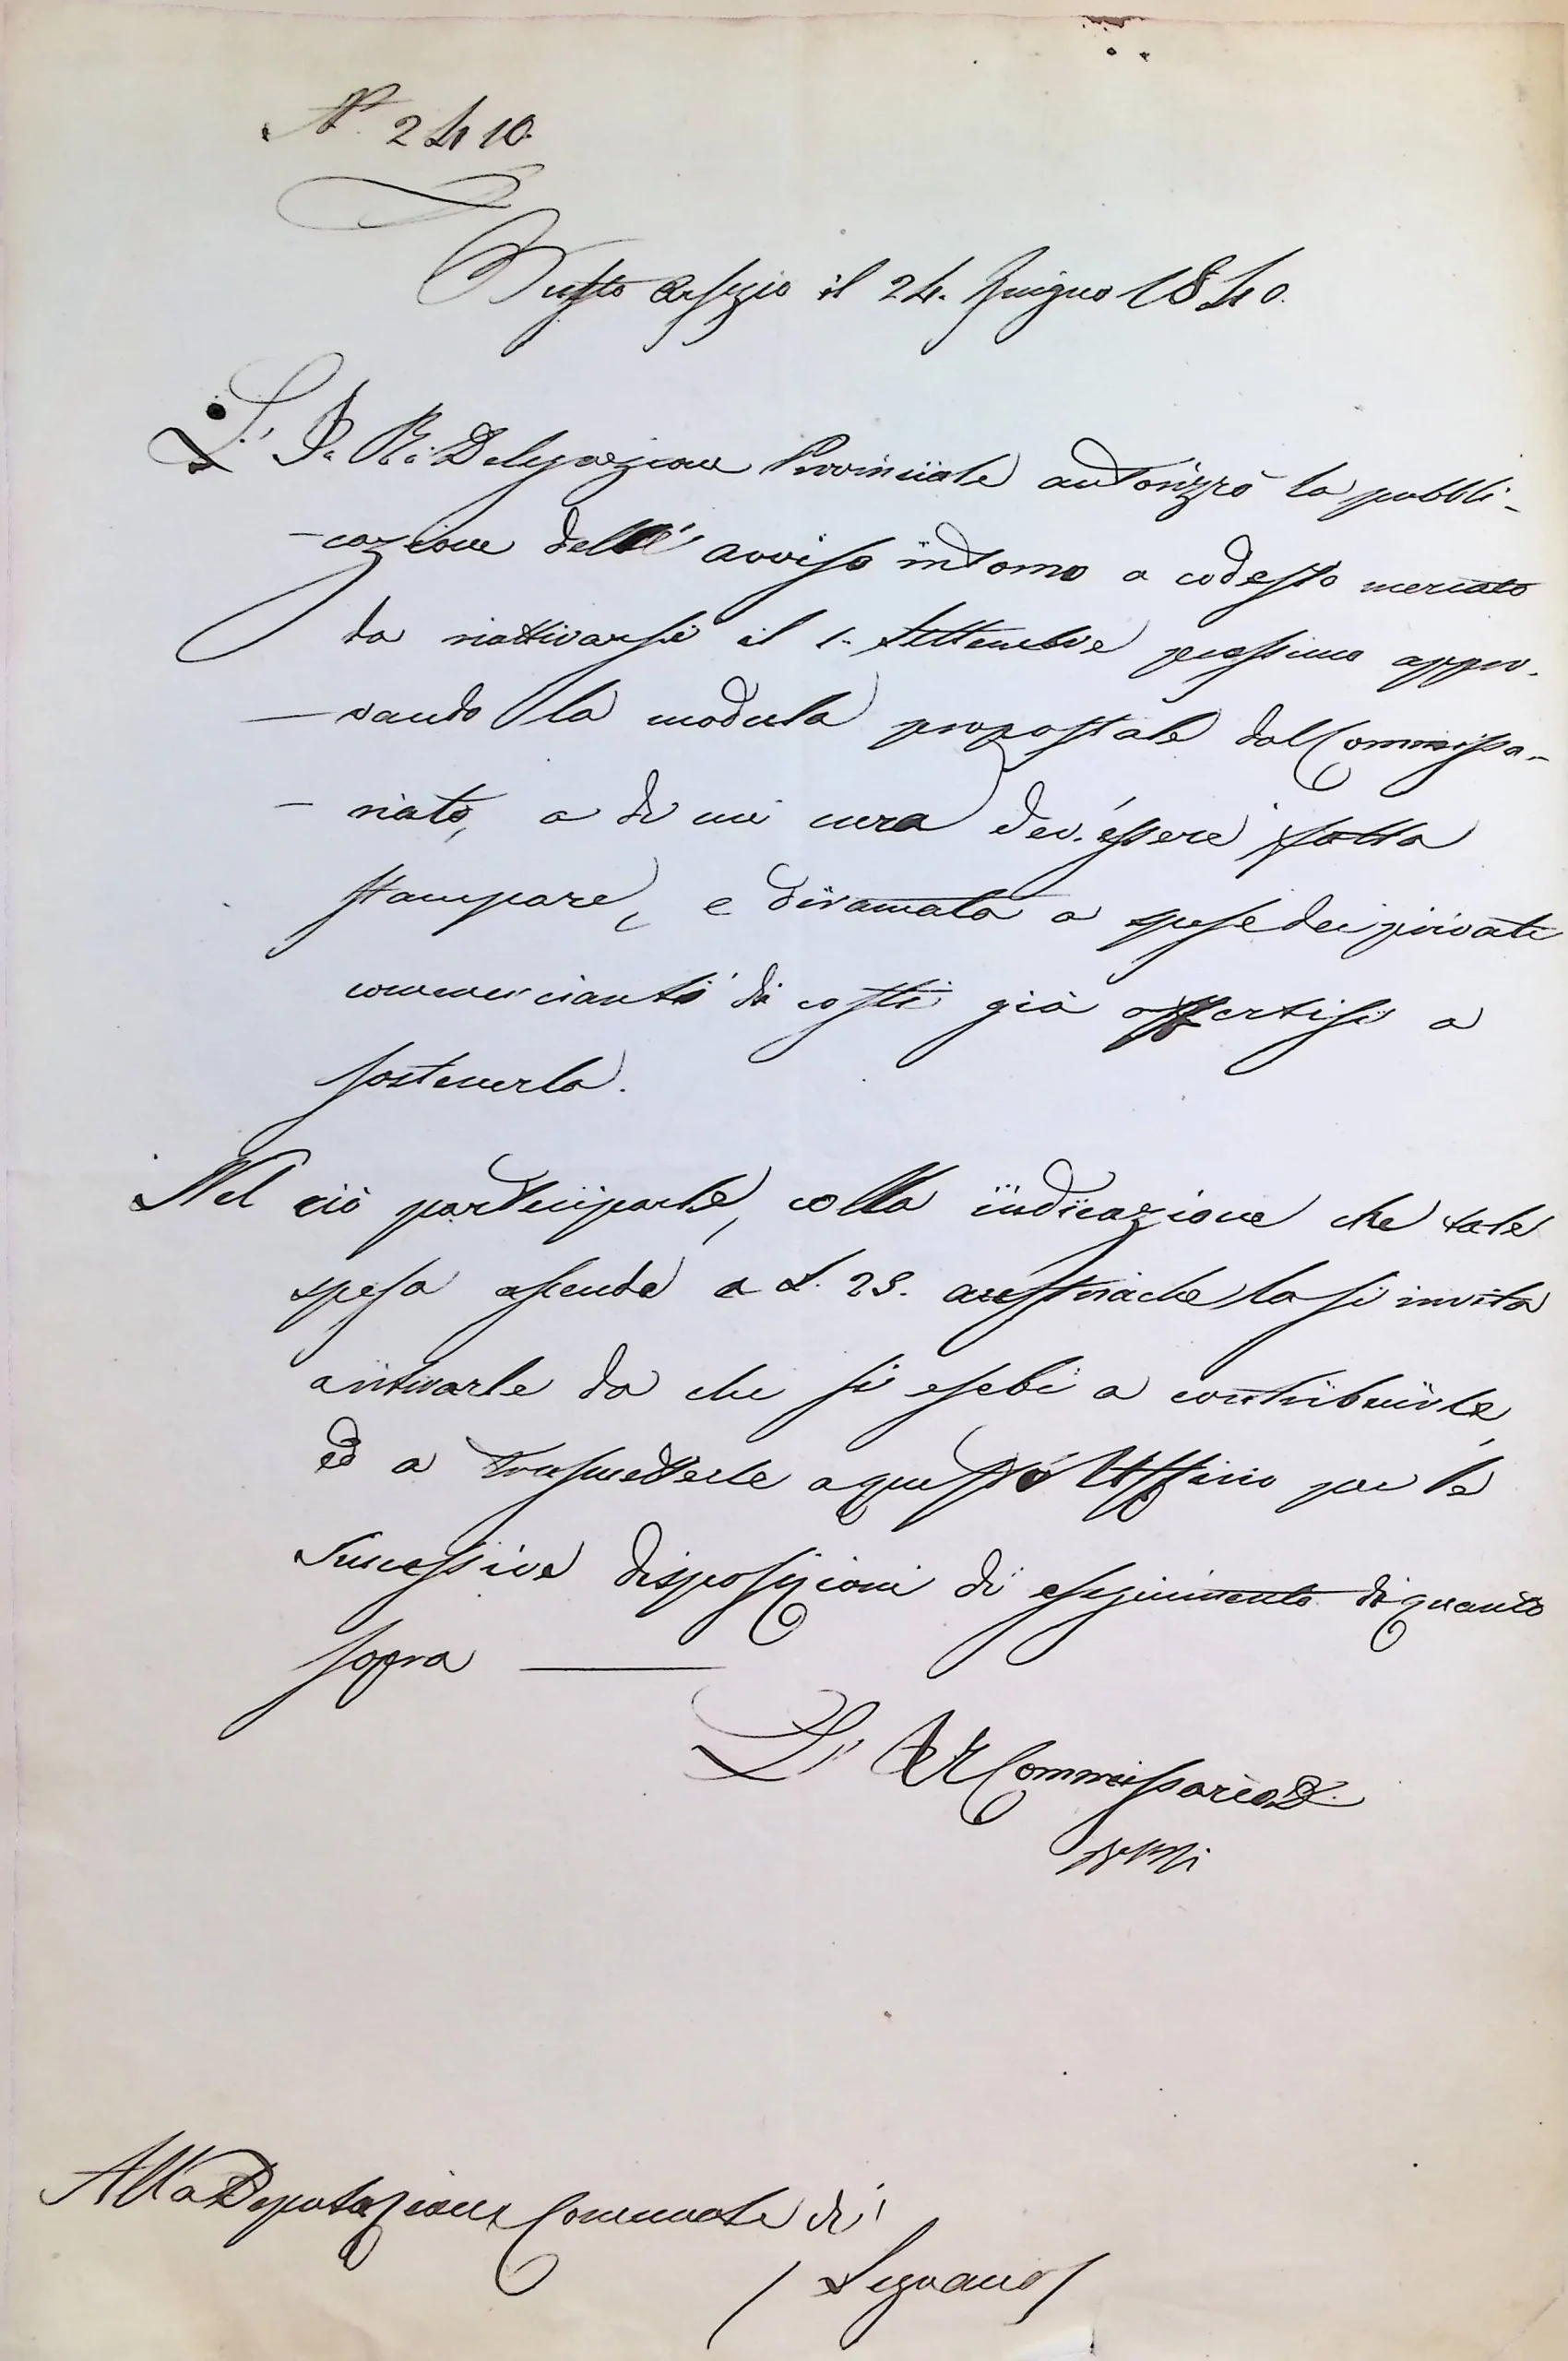 N.° 2410
Busto Arsizio il 24. Giugno 1840.
L' I. R. Delegazione Provinciale autorizzò la pubbli-
-cazione dell' avviso intorno a codesto mercato
da riattivarsi il 1. Settembre prossimo appro-
-vando la modula propostale dal Commissa-
-riato, a di cui cura dev'essere fatta
stampare, e diramata a spese dei privati
commercianti di costì già offertisi a
sostenerla.
Nel ciò parteciparle, colla indicazione che tale
spesa ascende a L. 25. austriache la si invita
ritirarle da chi si esebì a contribuirle,
ed a trasmetterle a questo Ufficio per le
successive disposizioni di eseguimento di quanto
sopra
L' IR Commissario D.
Alla Deputazione Comunale di
Legnano